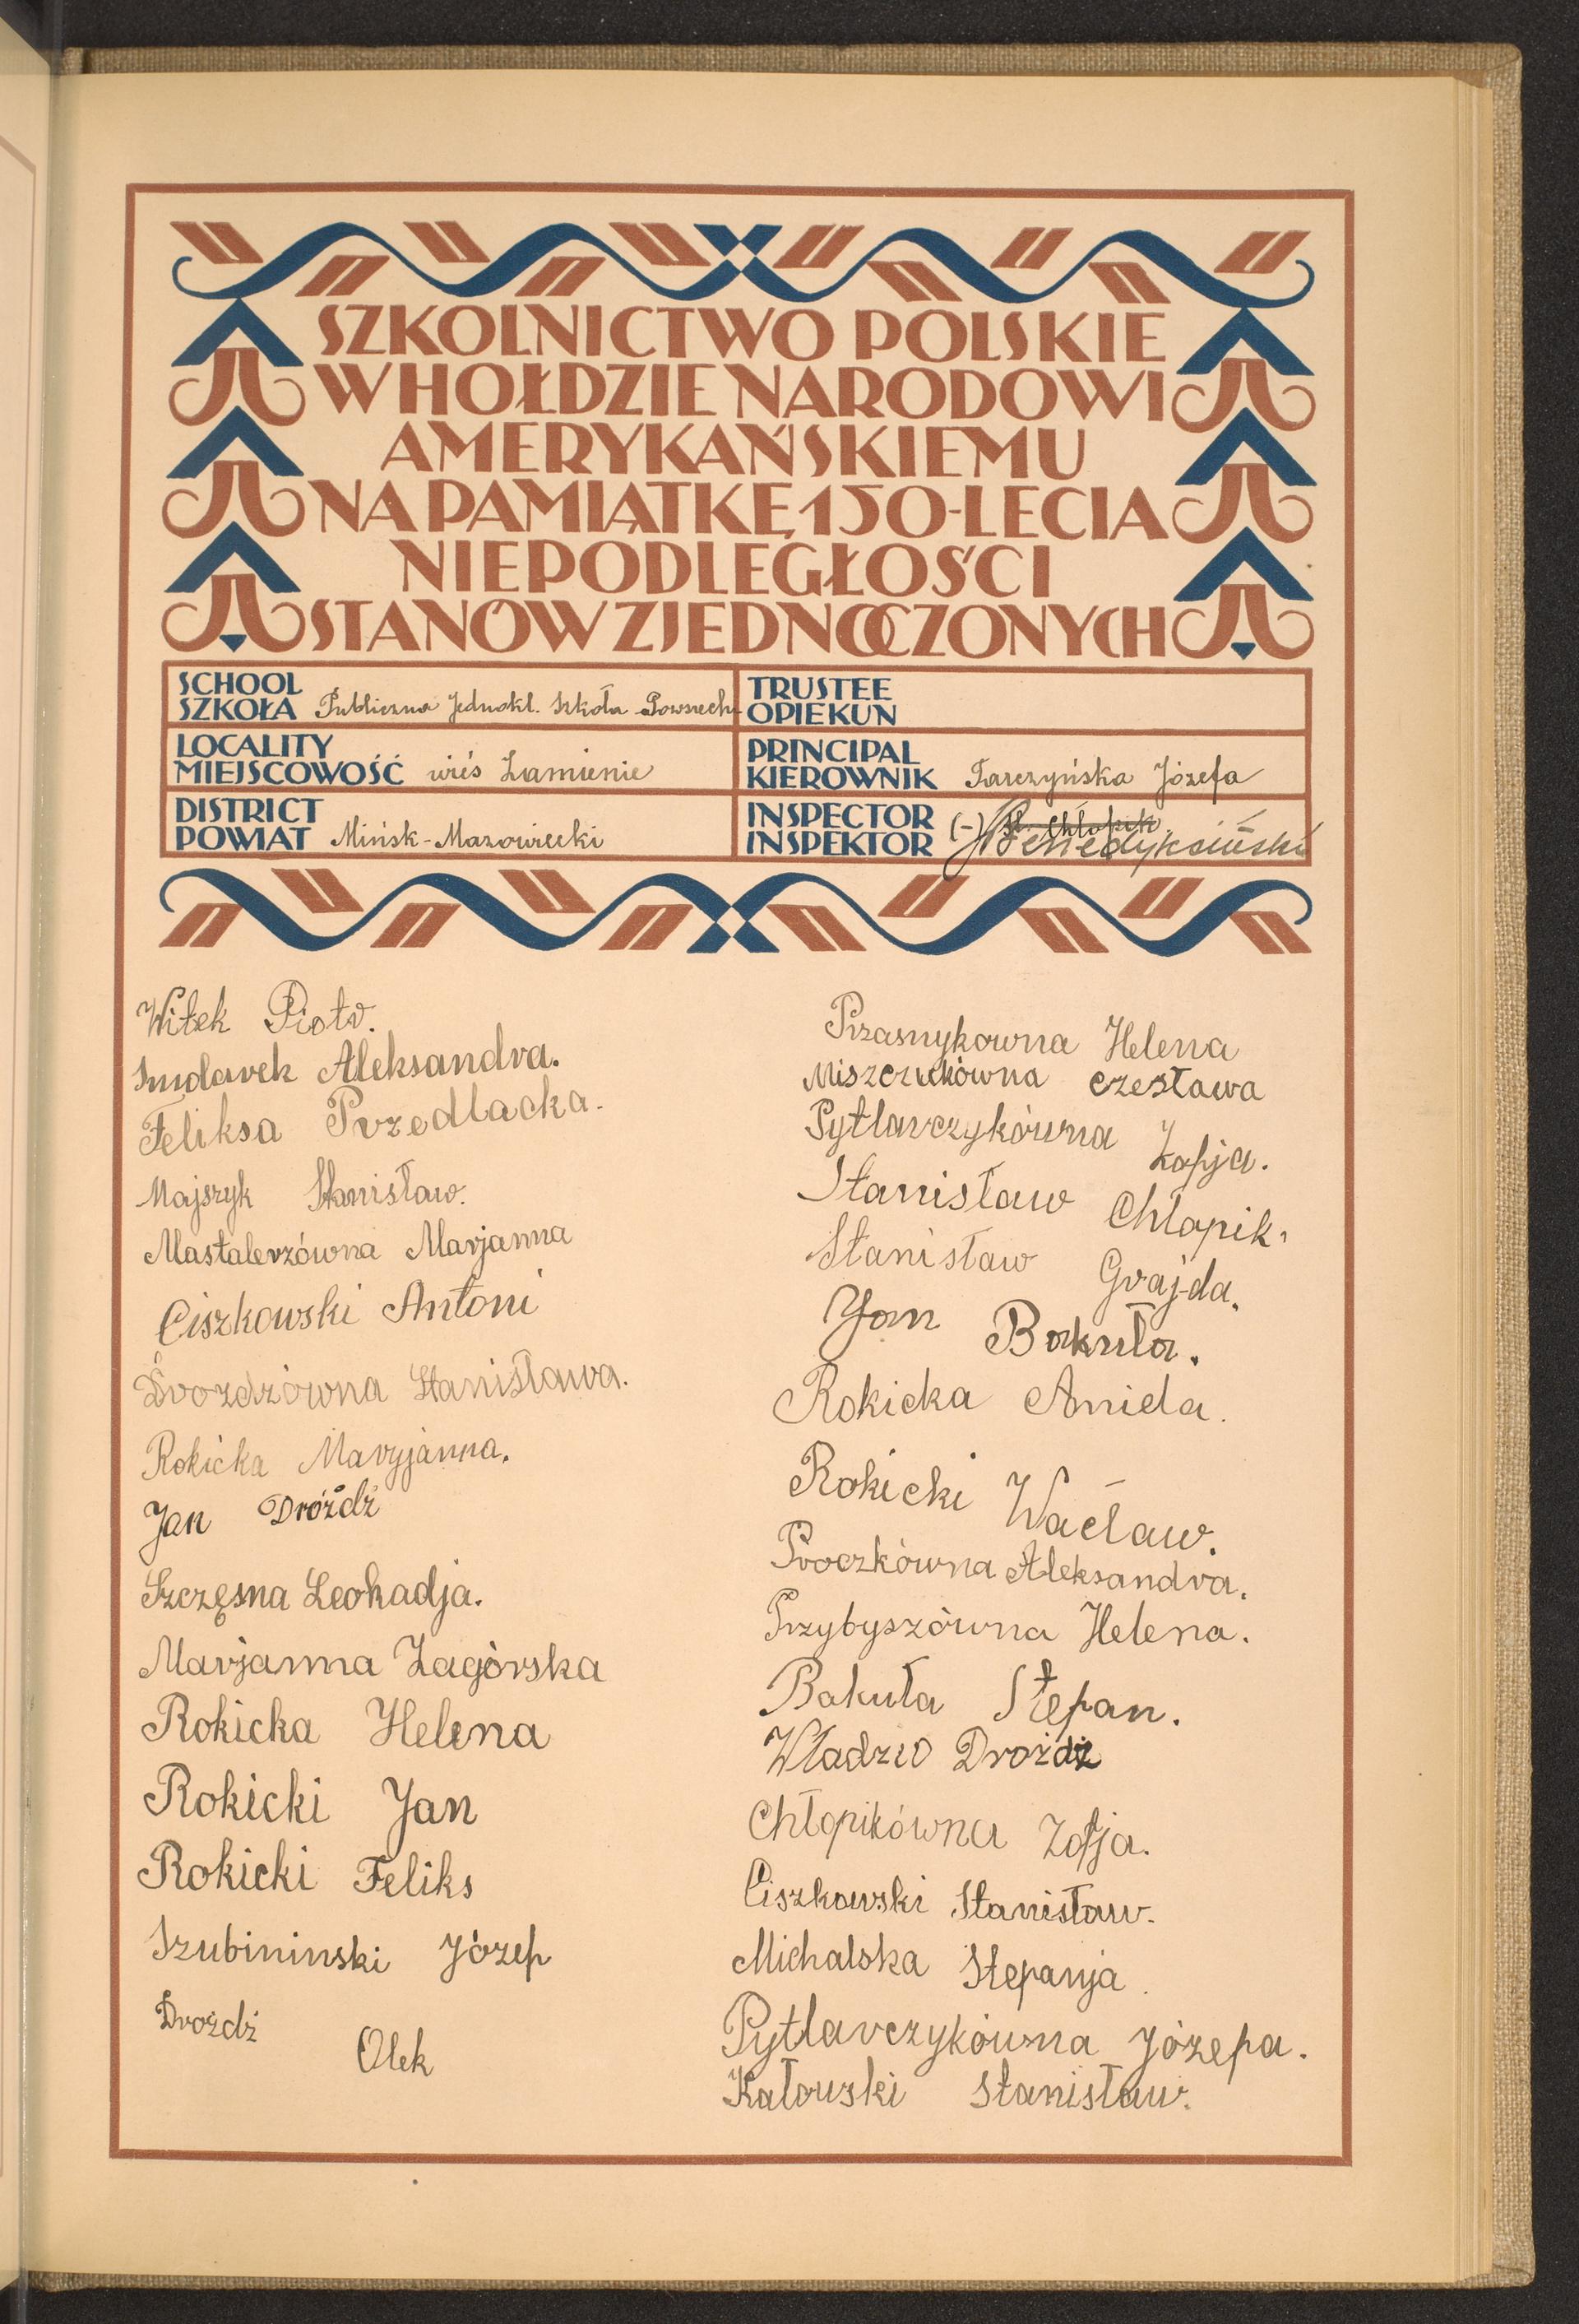 SZKOLNICTWO POLSKIE
W HOŁDZIE NARODOWI
AMERYKAŃSKIEMU
NA PAMIĄTKĘ 150-LECIA
NIEPODLEGŁOŚCI
STANÓW ZJEDNOCZONYCH
SCHOOL
SZKOŁA Publiczna Jednokl. Szkoła Powszech.
TRUSTEE
OPIEKUN
LOCALITY
MIEJSCOWOŚĆ wieś Łamienie
PRINCIPAL
KIEROWNIK Tarczyńska Józefa
DISTRICT
POWIAT Mińsk-Mazowiecki
INSPECTOR
INSPEKTOR (-) St. Chłopik
Witek Piotr.
Smolarek Aleksandra.
Feliksa Przedlacka.
Majszyk Stanisław.
Mastalerzówna Marjanna
Ciszkowski Antoni
Stanisława.
Rokicka Maryjanna.
Jan Dróżdż
Szczęsna Leokadja.
Marjanna Zagórska
Rokicka Helena
Rokicki Jan
Rokicki Feliks
Szubininski Józep
Drożdż Olek
Przasnykowna Helena
Miszczukówna czesława
Pytlarczykówna Zofja.
Stanisław Chłopik.
Stanisław Grajda.
Jan Bakuła.
Rokicka Aniela.
Rokicki Wacław.
Proczkówna Aleksandra.
Przybyszówna Helena.
Bakuła Stepan.
Władzio Drożdż
Chłopikówna Zofja.
Ciszkowski Stanisław.
Michalska Stepanja.
Pytlarczykówna Józepa.
Katowski Stanisław.